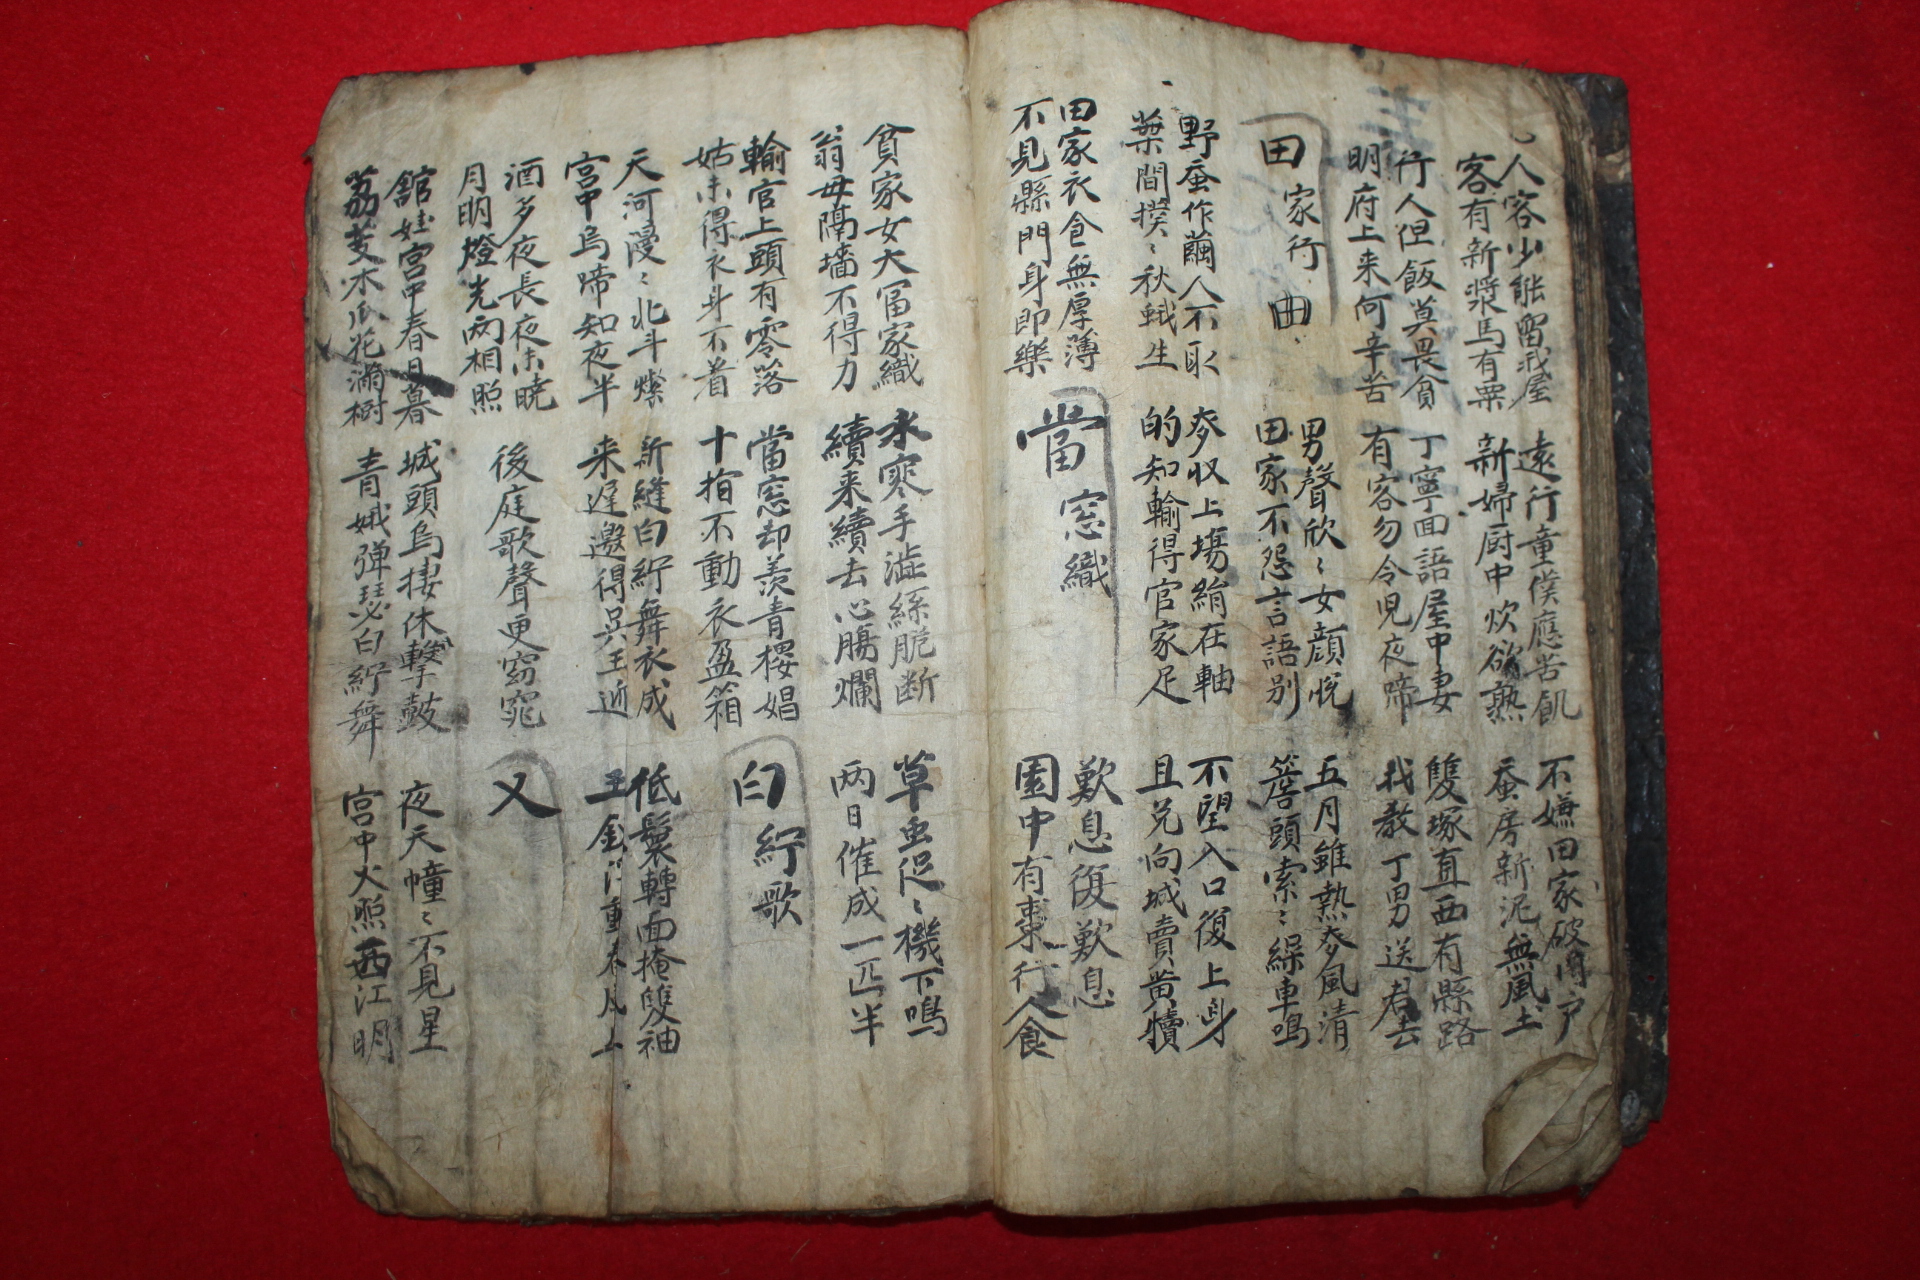 人客少能留我屋
客有新漿馬有粟
遠行童僕應苦飢
新婦厨中炊欲熟
不嫌田家破門戶
蚕房新泥無風土
行人但飯莫畏貧
明府上来何辛苦
丁寧面語屋中妻
有客勿令児夜啼
雙塚直西有縣路
我教丁男送君去
田家行 曲
男聲欣〻女顔悅
田家不怨言語别
五月雖熱麥風清
簷頭索〻繰車鳴
野蚕作繭人不取
葉間撲〻秋蛾生
麥收上場絹在軸
的知輸得官家足
不望入口復上身
且兑向城賣黄犢
田家衣食無厚薄
不見縣門身即樂
當窓織
歎息復歎息
園中有棗行人食
貧家女大冨家織
翁母隔墻不得力
水寒手澁絲脆断
續来續去心腸爛
草虫促〻機下鳴
两日催成一匹半
輸官上頭有零落
姑未得衣身不着
當窓却羨青樓娼
十指不動衣盈箱
白紵歌
天河漫〻北斗燦
宮中烏啼知夜半
新縫白紵舞衣成
来遲邀得吳王迎
低鬟轉面掩雙袖
玉釵 重春風
酒多夜長夜未曉
月明燈光两相照
後庭歌聲更窈窕
又
館娃宮中春日暮
荔芰木瓜花滿樹
城頭烏棲休擊鼓
青娥弾瑟白紵舞
夜天幢〻不見星
宮中火照西江明